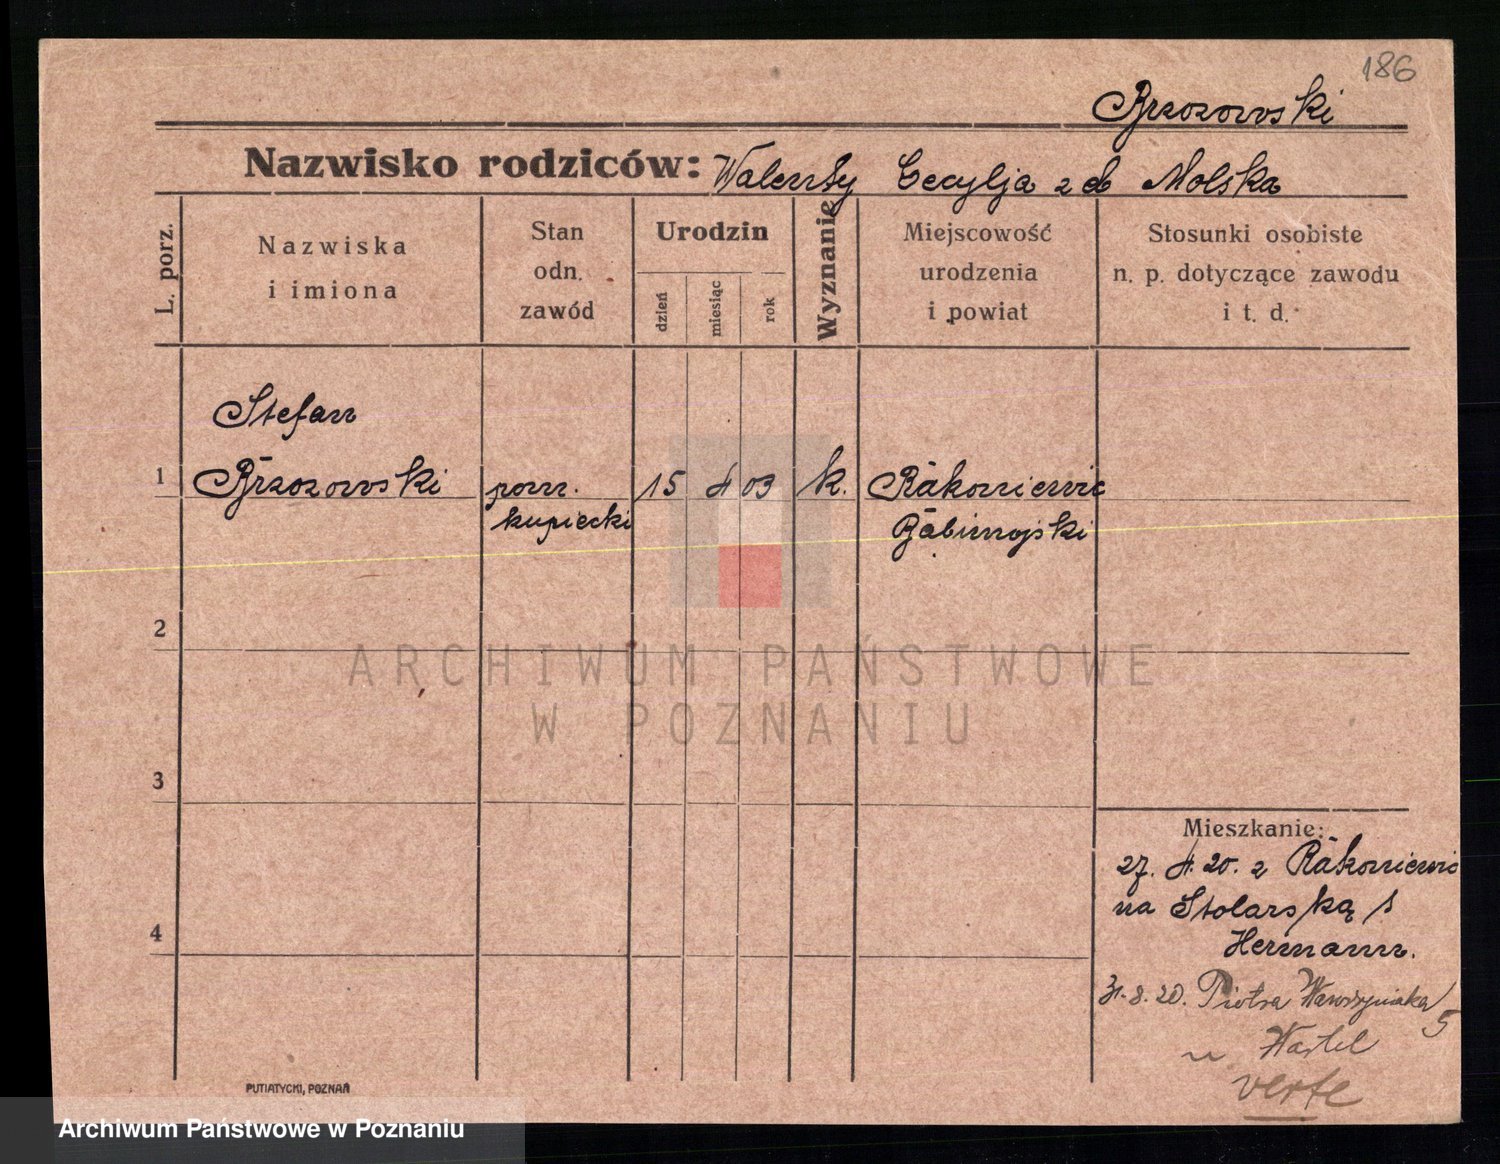 186
Brzozowski
Nazwisko rodziców: Walenty Cecylja z d Molska
L. porz.
Nazwiska i imiona
Stan odn. zawód
Urodzin
dzień
miesiąc
rok
Wyznanie
Miejscowość urodzenia i powiat
Stosunki osobiste n. p. dotyczące zawodu i t. d.
Stefan
1 Brzozowski pom. 15 4 03 k. Rakoniewic
kupiecki Babimojski
2
ARCHIWUM PAŃSTWOWE
W POZNANIU
3
Mieszkanie:
27. 4. 20. z Rakoniewic
na Stolarską 1
4
Hermann.
31. 8. 20. Piotra Wawrzyniaka 5
u Wartel
verte
PUTIATYCKI, POZNAŃ
Archiwum Państwowe w Poznaniu